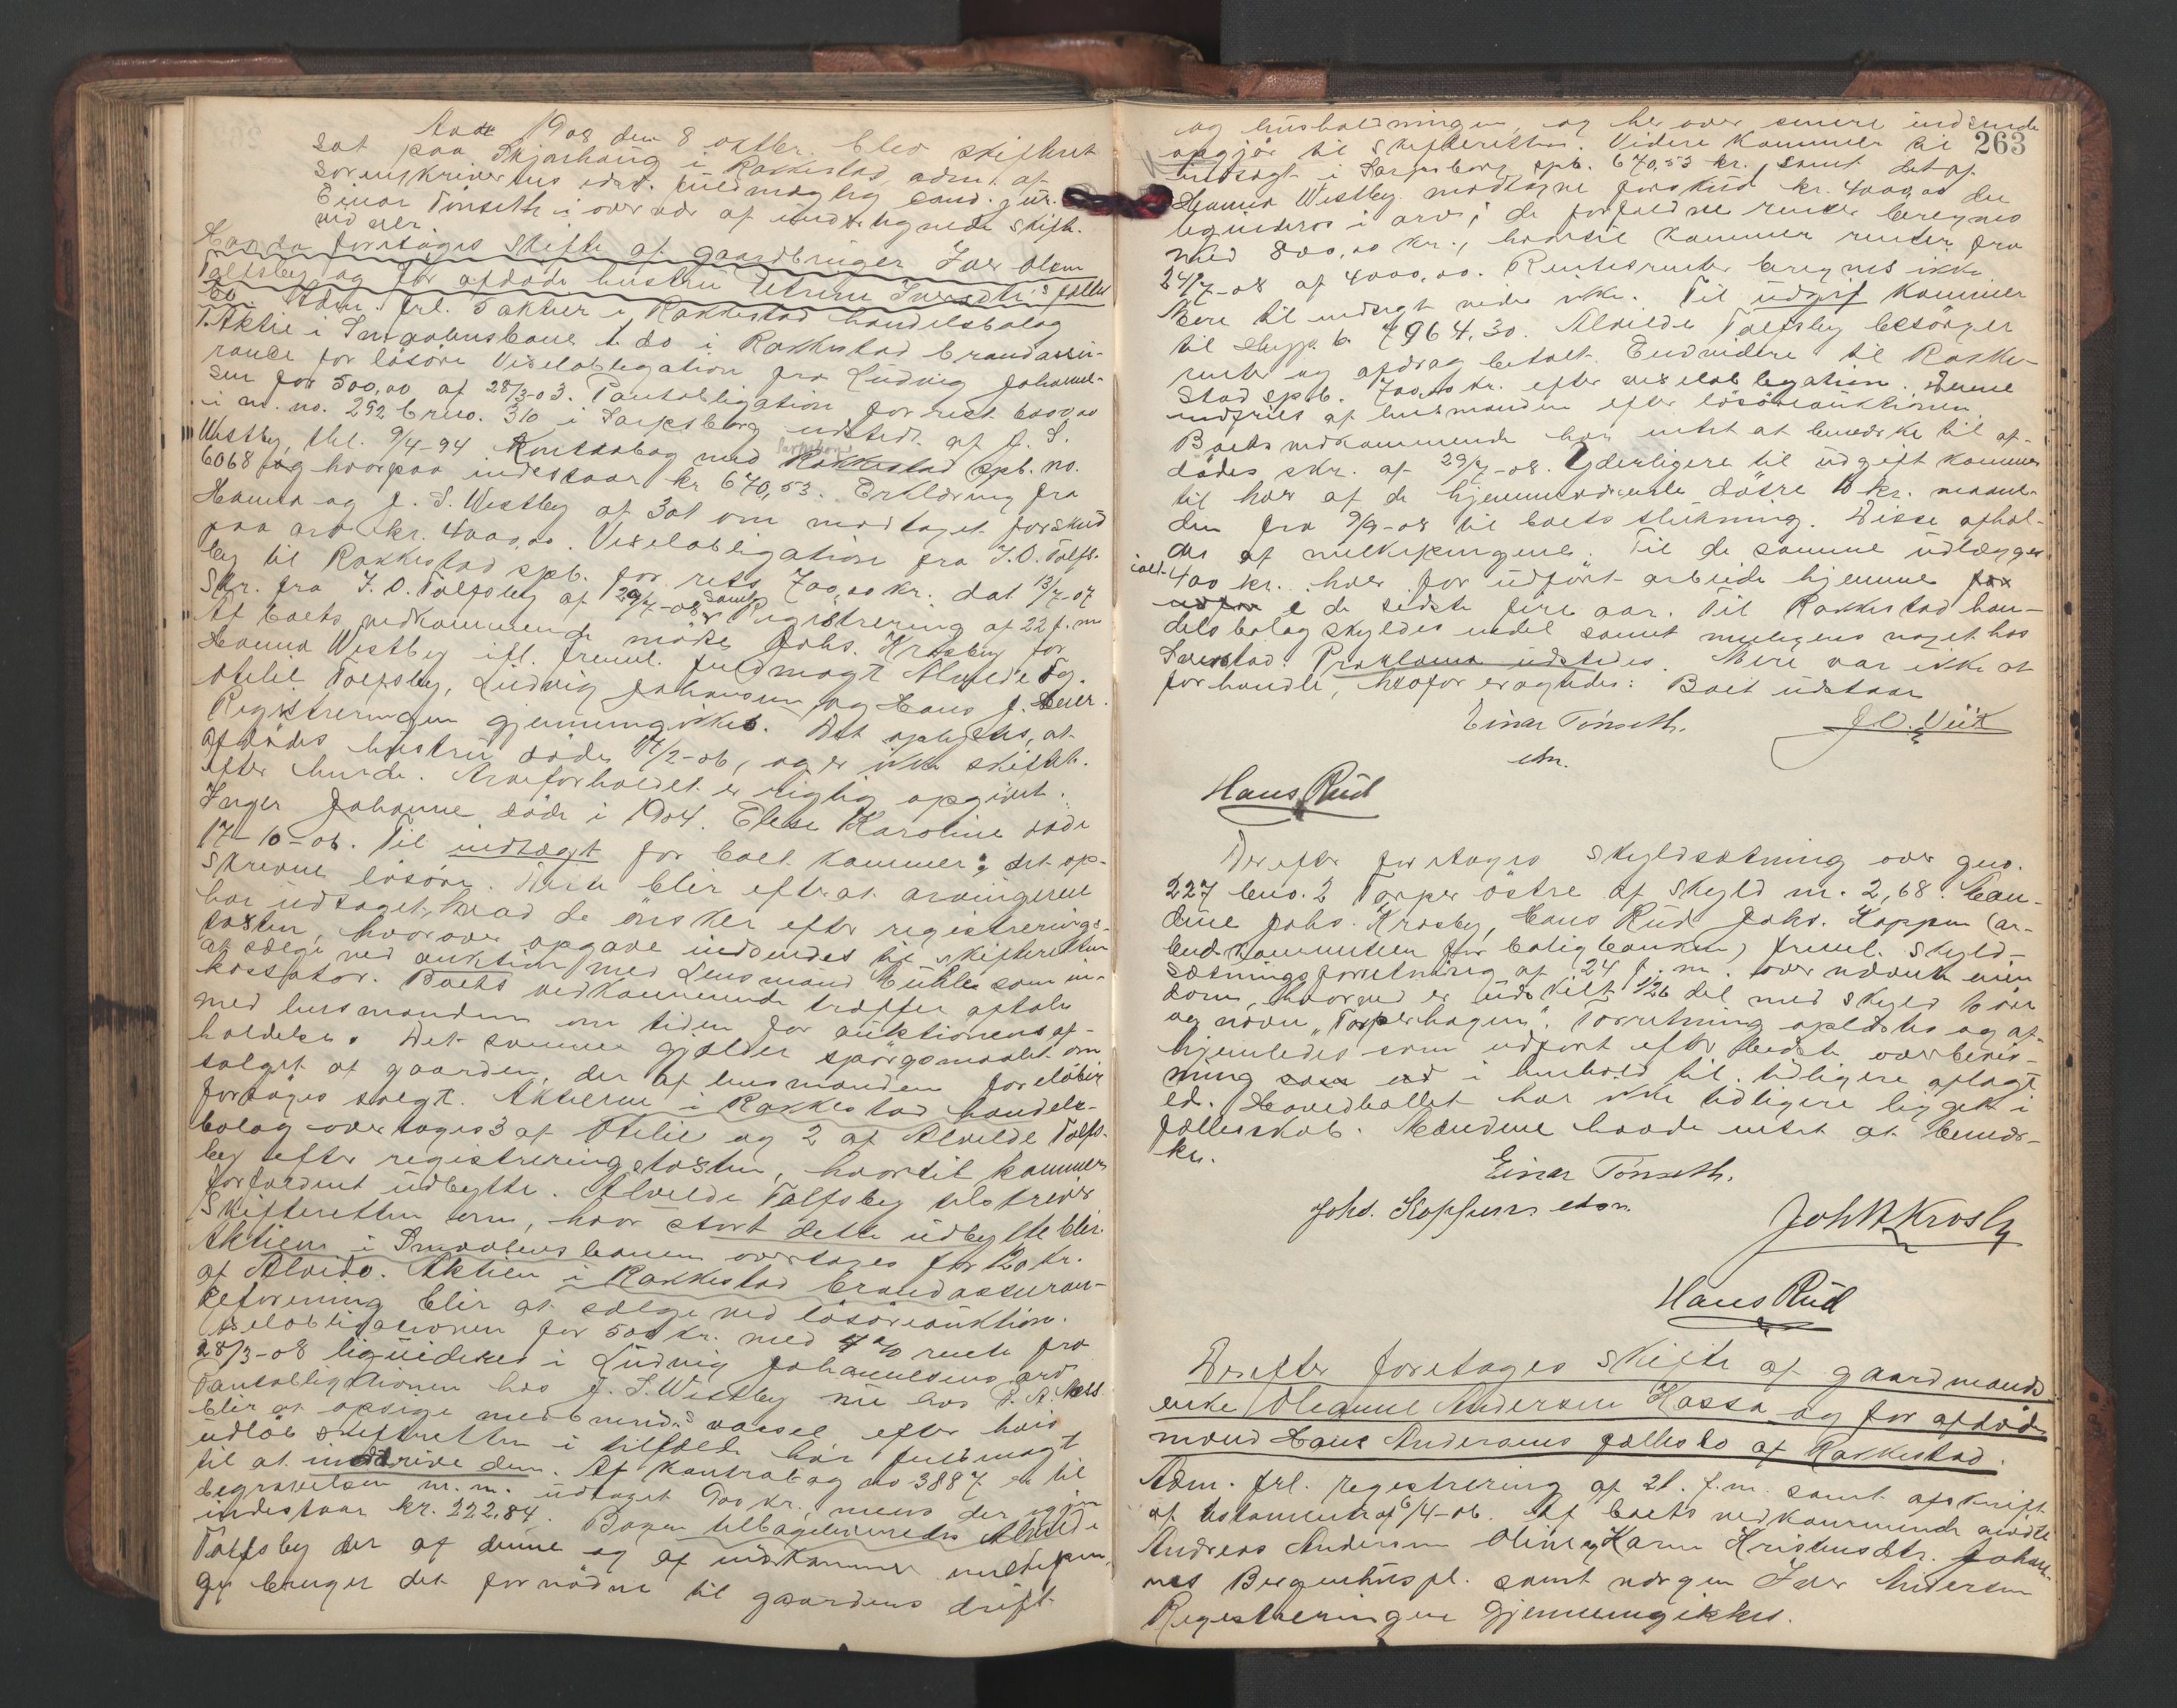 Aar 1908 den 8 oktbr. blev skifteret
sat paa Skjørhaug i Rakkestad adm. af
sorenskriverens edsv. fuldmægtig cand. jur.
Einar Tønseth i overvær af undertegnede skift.
vidner.
Hvorda foretoges skifte af gaardbruger Iver Olsen
Tolfsby og før afdøde hustru Iversdtr.'s fælles
bo. Adm. frl. 5 aktier i Rakkestad handelsbolag
1. Aktie i Smaalensbane 1 do i Rakkestad brandassu-
rance for løsøre Vexelobligation fra Ludvig Johannes-
sen for 500,00 af 28/3-03. Pantobligation for rest 6000,00
i m. no. 292 brno. 310 i Sarpsborg udstedt af J. S.
Westby, thl. 9/4-94 Kontrabog med Sarpsborg Rakkestad spb. no.
6068 hvorpaa indestaar kr 670,53. Erklæring fra
Hanna og J. S. Westby af 30t om modtaget forskud
paa arv kr. 4000,00. Vexelobligation fra I. O. Tolfs-
by til Rakkestad spb. for rest 700,00 kr. dat 13/7-07
Skr. fra I. O. Tolfsby af 29/7-08 samt Registrering af 22 f. m
Af boets vedkommende mødte Johs. Krosby for
Hanna Westby ifl. freml. fuldmagt Alvilde og
Otelie Tolfsby, Ludvig Johansen og Hans J.
Registreringen gjennemgikkes. Det oplystes, at
afdødes hustru døde /2-06, og er ikke skiftet
efter hende. Arveforholdet er rigtig opgivet.
Inger Johanne døde i 1904. Elese Karoline døde
17-10-06. Til indtægt for boet kommer: det op-
skrevne løsøre. Dette blir efterat arvingerne
har udtaget, hvad de ønsker efter registrerings-
taksten, hvorover opgave indsendes til skifteretten
at sælge ved auktion med Lensmand Bühler som in-
kassator. Boets vedkommende træffer aftale
med lensmanden om tiden for auktionens af-
holdelse. Det samme gjælder spørgsmaalet om
salget af gaarden, der af lensmanden foreløbig
forsøges solgt. Aktierne i Rakkestad handels-
bolag overtages 3 af Otelie og 2 af Alvilde Tolfs-
by efter registreringstaksten, hvortil kommer
forfaldent udbytte. Alvilde Tolfsby tilskriver
Skifteretten om, hvor stort dette udbytte blir.
Aktien i Smaalensbanen overtages for 120 kr.
af Alvilde. Aktien i Rakkestad brandassuran-
ceforening blir at sælge ved løsøreauktion.
Vexelobligationen for 500 kr. med 4 % rente fra
28/3-08 liqvideres i Ludvig Johannesens arv
Pantobligationen hos J. S. Westby nu hos P. A. Næss
blir at opsige med 6 mnd.s varsel efter hvis
udløb skifteretten i tilfælde har fuldmagt
til at inddrive den. Af Kontrabog no 3887 er til
begravelsen m. m. udtaget 900 kr., mens der igjen
indestaar kr. 222,84. Bogen tilbageleveredes Alvilde
Tolfsby der af denne og af indkomne melkepen-
ger bruger det fornødne til gaardens drift
263
og husholdningen, og her over senere indsende
opgjør til skifteretten. Videre kommer til
indtægt i Sarpsborg spb. 670,53 kr., samt det af
Hanna Westby modtagne forskud kr. 4000,00 der
liqvideres i arv; de forfaldne renter beregnes
med 800,00 kr., hvortil kommer renter fra
24/7-08 af 4000,00. Rentesrenter beregnes ikke.
Mere til indtægt vides ikke. Til udgift kommer
til Hyp. b. 7964,30. Alvilde Tolfsby besørger
renter og afdrag betalt. Endvidere til Rakke-
stad spb. 700,00 kr. efter vexelobligation. Denne
indfries af lensmanden efter løsøreauktionen.
Boets vedkommende har intet at bemærke til af-
dødes skr. af 29/7-08. Yderligere til udgift kommer
til hver af de hjemmeværende døtre 10 kr. maane-
den fra 9/9-08 til boets slutning. Disse afhol-
des af melkepengene. Til de samme udlægges
ialt 400 kr. hver for udført arbeide hjemme for
udført i de sidste fire aar. Til Rakkestad han-
delsbolag skyldes endel samt muligens noget hos
Proklama udstedes. Mere var ikke at
forhandle, hvorfor eragtedes: Boet udstaar
Einar Tønseth. J. O. Viik
edm.
Hans Rud
Derefter foretoges skyldsætning over gno.
227 bno. 2 Torper østre af skyld m. 2,68. Mæn-
dene Johs. Krosby, Hans Rud Johs. Koppen (ar-
beidskommiteen for boligbanken) freml. skyld-
sætningsforretning af 24 f. m. over nævnte eien
dom, hvorved er udskilt 1/26 del med skyld 10 øre
og navn „Torperhagen". Forretning oplæstes og af-
hjemledes som udført efter bedste overbevis-
ning som ed i henhold til tidligere aflagt
ed. Hovedbøllet har ikke tidligere ligget i
fællesskab. Mændene havde intet at bemær-
ke.
Einar Tønseth.
Johs. Koppen edm. Joh N Krosby
Hans Rud
Derefter foretoges skifte af gaardmands
enke Oleanne Andersen Kassa og før afdøde
mand Hans Andersens fællesbo af Rakkestad.
Adm. frl. registrering af 21. f. m. samt afskrift
af testamente af 6/4-06. Af boets vedkommende mødte
Andreas Andersen Oline og Karen Kristensdtr. Johan-
nes Bergenhuspl. samt værgen Iver Andersen
Registreringen gjennemgikkes.